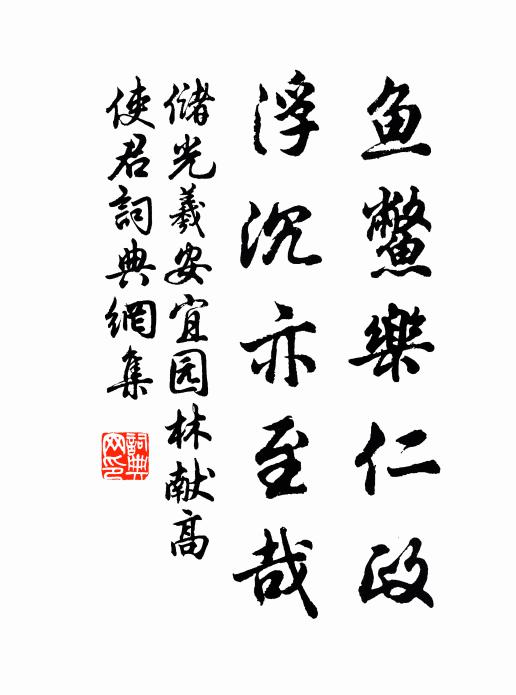 鱼鳖樂仁政
浮沉亦至哉
儲光羲安宜园林献高
使君詞典網集
詞典网印